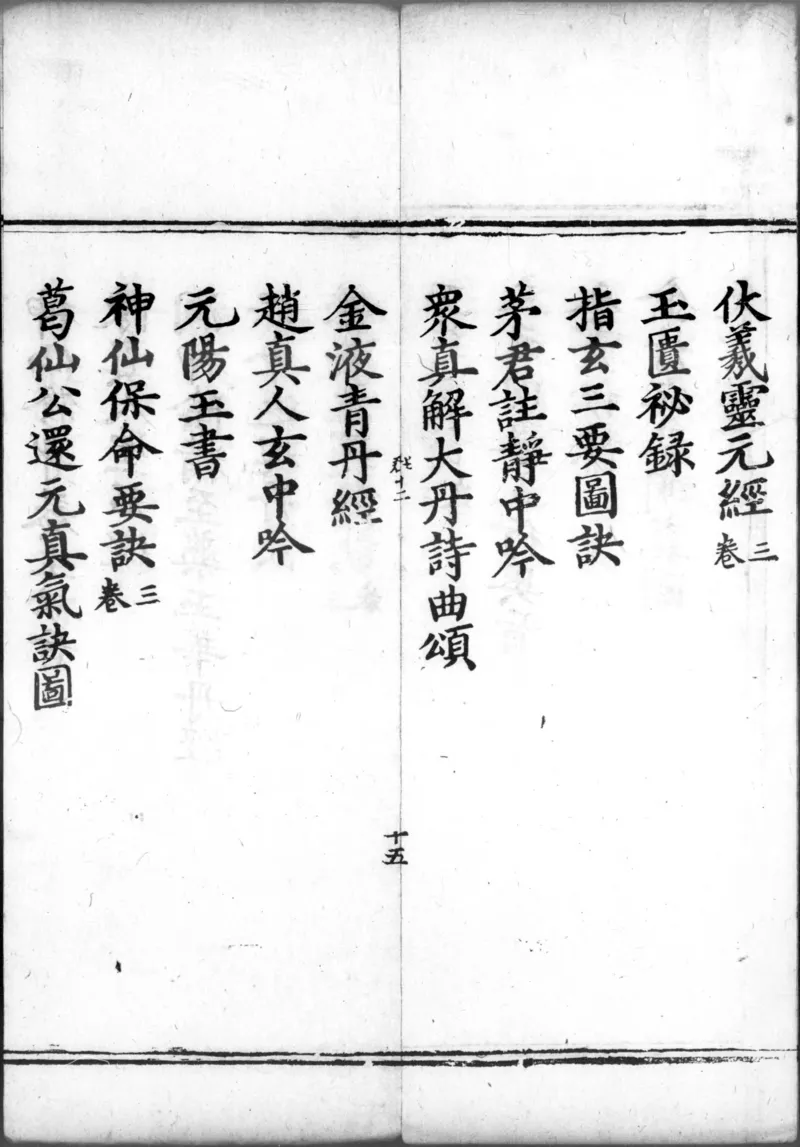 伏羲靈元經三卷
玉匱祕録
指玄三要圖訣
茅君註靜中吟
衆真解大丹詩曲頌
十二
十五
金液青丹經
趙真人玄中吟
元陽玉書
神仙保命要訣三卷
葛仙公還元真氣訣圖